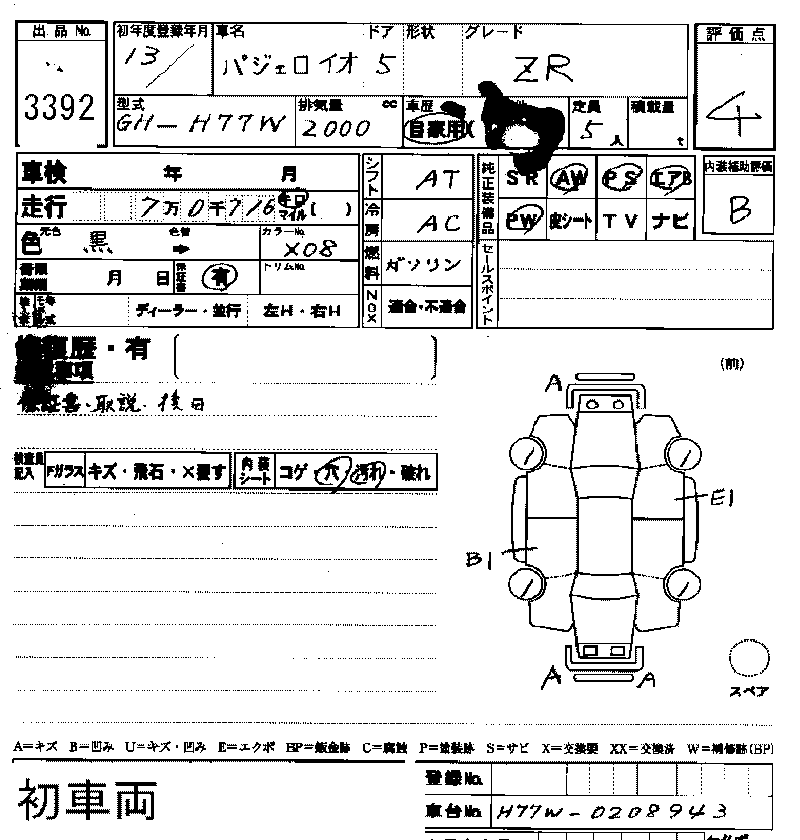 出品No.
3392
初年度登録年月 車名 ドア 形状 グレード
13/ パジェロイオ 5 ZR
評価点
4
型式 排気量 cc 車歴 定員 積載量
GH-H77W 2000 自家用 5人 t
車検 年 月
走行 7万0千716 キロ マイル ( )
色 元色 黒 色替 ➡ カラーNo. X08
月 日 保証書 有 トリムNo.
ディーラー・並行 左H・右H
シフト AT
冷房 AC
燃料 ガソリン
NOX 適合・不適合
純正装備品 SR AW PS エアB
PW 皮シート TV ナビ
セールスポイント
内装補助評価
B
歴・有
事項
保証書・取説・後日
検査員記入 Fガラス キズ・飛石・×要す 内装シート コゲ・穴・汚れ・破れ
(前)
A
E1
B1
A A
スペア
A=キズ B=凹み U=キズ・凹み E=エクボ BP=鈑金跡 C=腐蝕 P=塗装跡 S=サビ X=交換要 XX=交換済 W=補修跡(BP)
初車両
登録No.
車台No. H77W-0208943